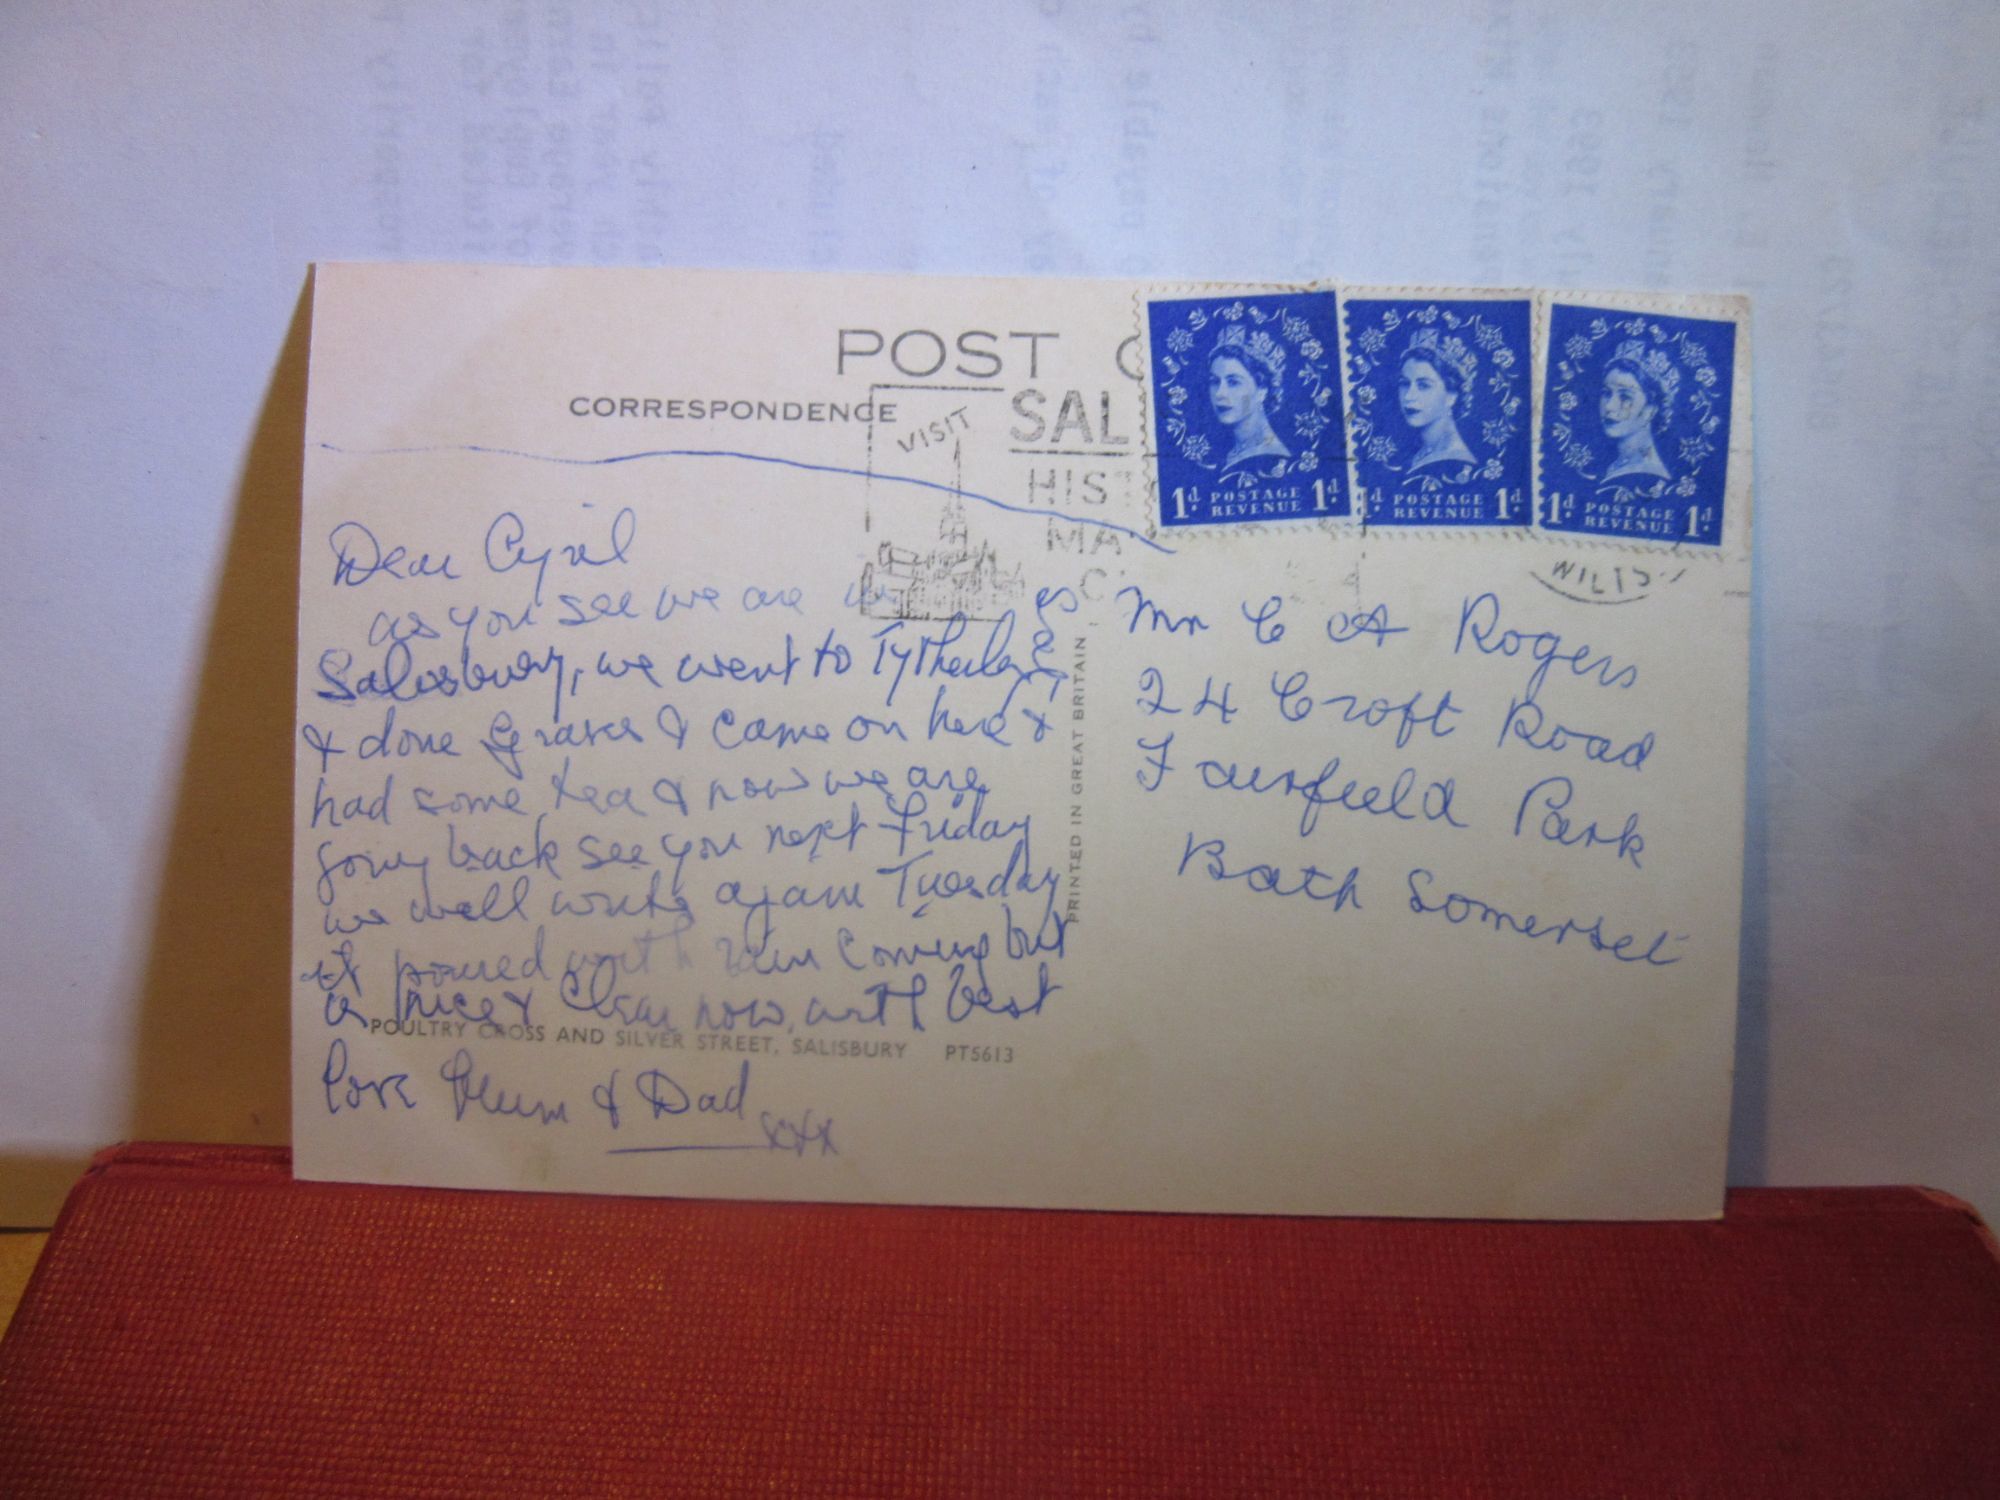 POST C
CORRESPONDENCE
VISIT
SAL
HIS
MA
C
1d POSTAGE REVENUE 1d
1d POSTAGE REVENUE 1d
1d POSTAGE REVENUE 1d
WILTS
Dear Cyril
as you see we are in
Salisbury, we went to Tytherley
& done graves & came on here &
had some tea & now we are
going back see you next Friday
we well write again Tuesday
it poured with rain coming but
is nice & clear now, with best
Love Mum & Dad
xxx
POULTRY CROSS AND SILVER STREET, SALISBURY PT5613
PRINTED IN GREAT BRITAIN
Mr C A Rogers
24 Croft Road
Fairfield Park
Bath Somerset
January 1993
ly 1993
payable by